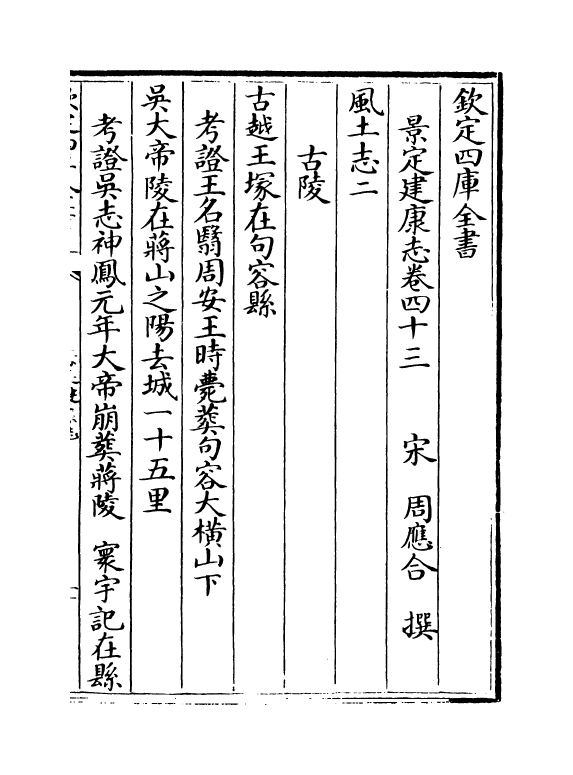 欽定四庫全書
景定建康志卷四十三　宋　周應合　撰
風土志二
古陵
古越王塚在句容縣
考證王名翳周安王時薨葬句容大横山下
吳大帝陵在蔣山之陽去城一十五里
考證吳志神鳳元年大帝崩葬蔣陵　寰宇記在縣